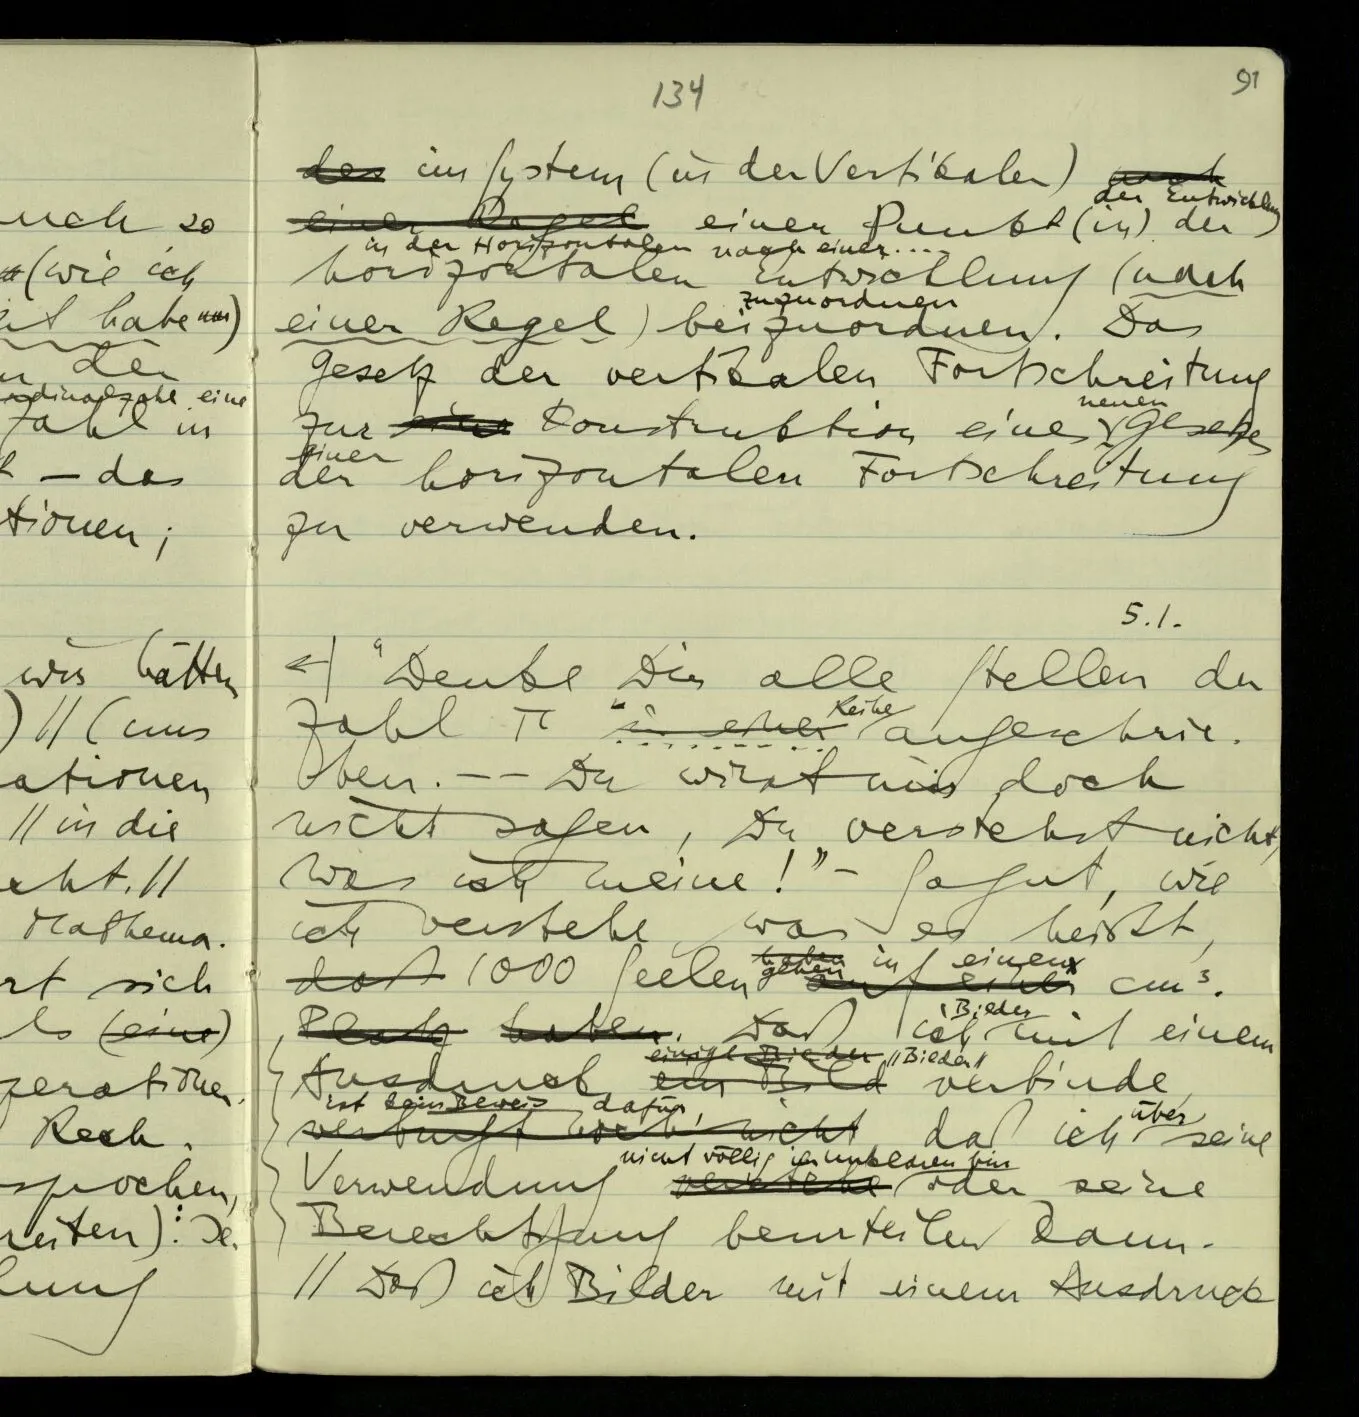 134
91
uch so
(wie ich
habe
der
eine
Zahl in
– das
tionen;
wir hätten
) // (uns
ationen
// in die
eht. //
Mathema-
rt sich
ls (eine)
perationen
Rech-
sprochen,
reiten): De
lung
der im System (in der Vertikalen) nach
der Entwicklung
einer Regel einen Punkt (in) der
in der Horizontalen nach einer....
horizontalen Entwicklung (nach
zuzuordnen
einer Regel) beizuordnen. Das
Gesetz der vertikalen Fortschreitung
neuen
zur eine Konstruktion eines Gesetzes
einer
der horizontalen Fortschreitung
zu verwenden.
5.1.
"Denke Dir alle Stellen der
Reihe
Zahl π in einer angeschrie-
ben. –– Du wirst mir doch
nicht sagen, Du verstehst nicht,
was ich meine!" – Ja gut, wie
ich verstehe was es heißt,
haben in einem
gehen
daß 1000 Seelen auf cm³.
Bilder
Platz haben. Daß ich mit einem
einige Bilder // "Bilder"
Ausdruck ein Bild verbinde
ist kein Beweis dafür,
über
verbürgt noch nicht, daß ich seine
nicht völlig im unklaren bin
Verwendung verstehe oder seine
Berechtigung beurteilen kann.
// Daß ich Bilder mit einem Ausdruck